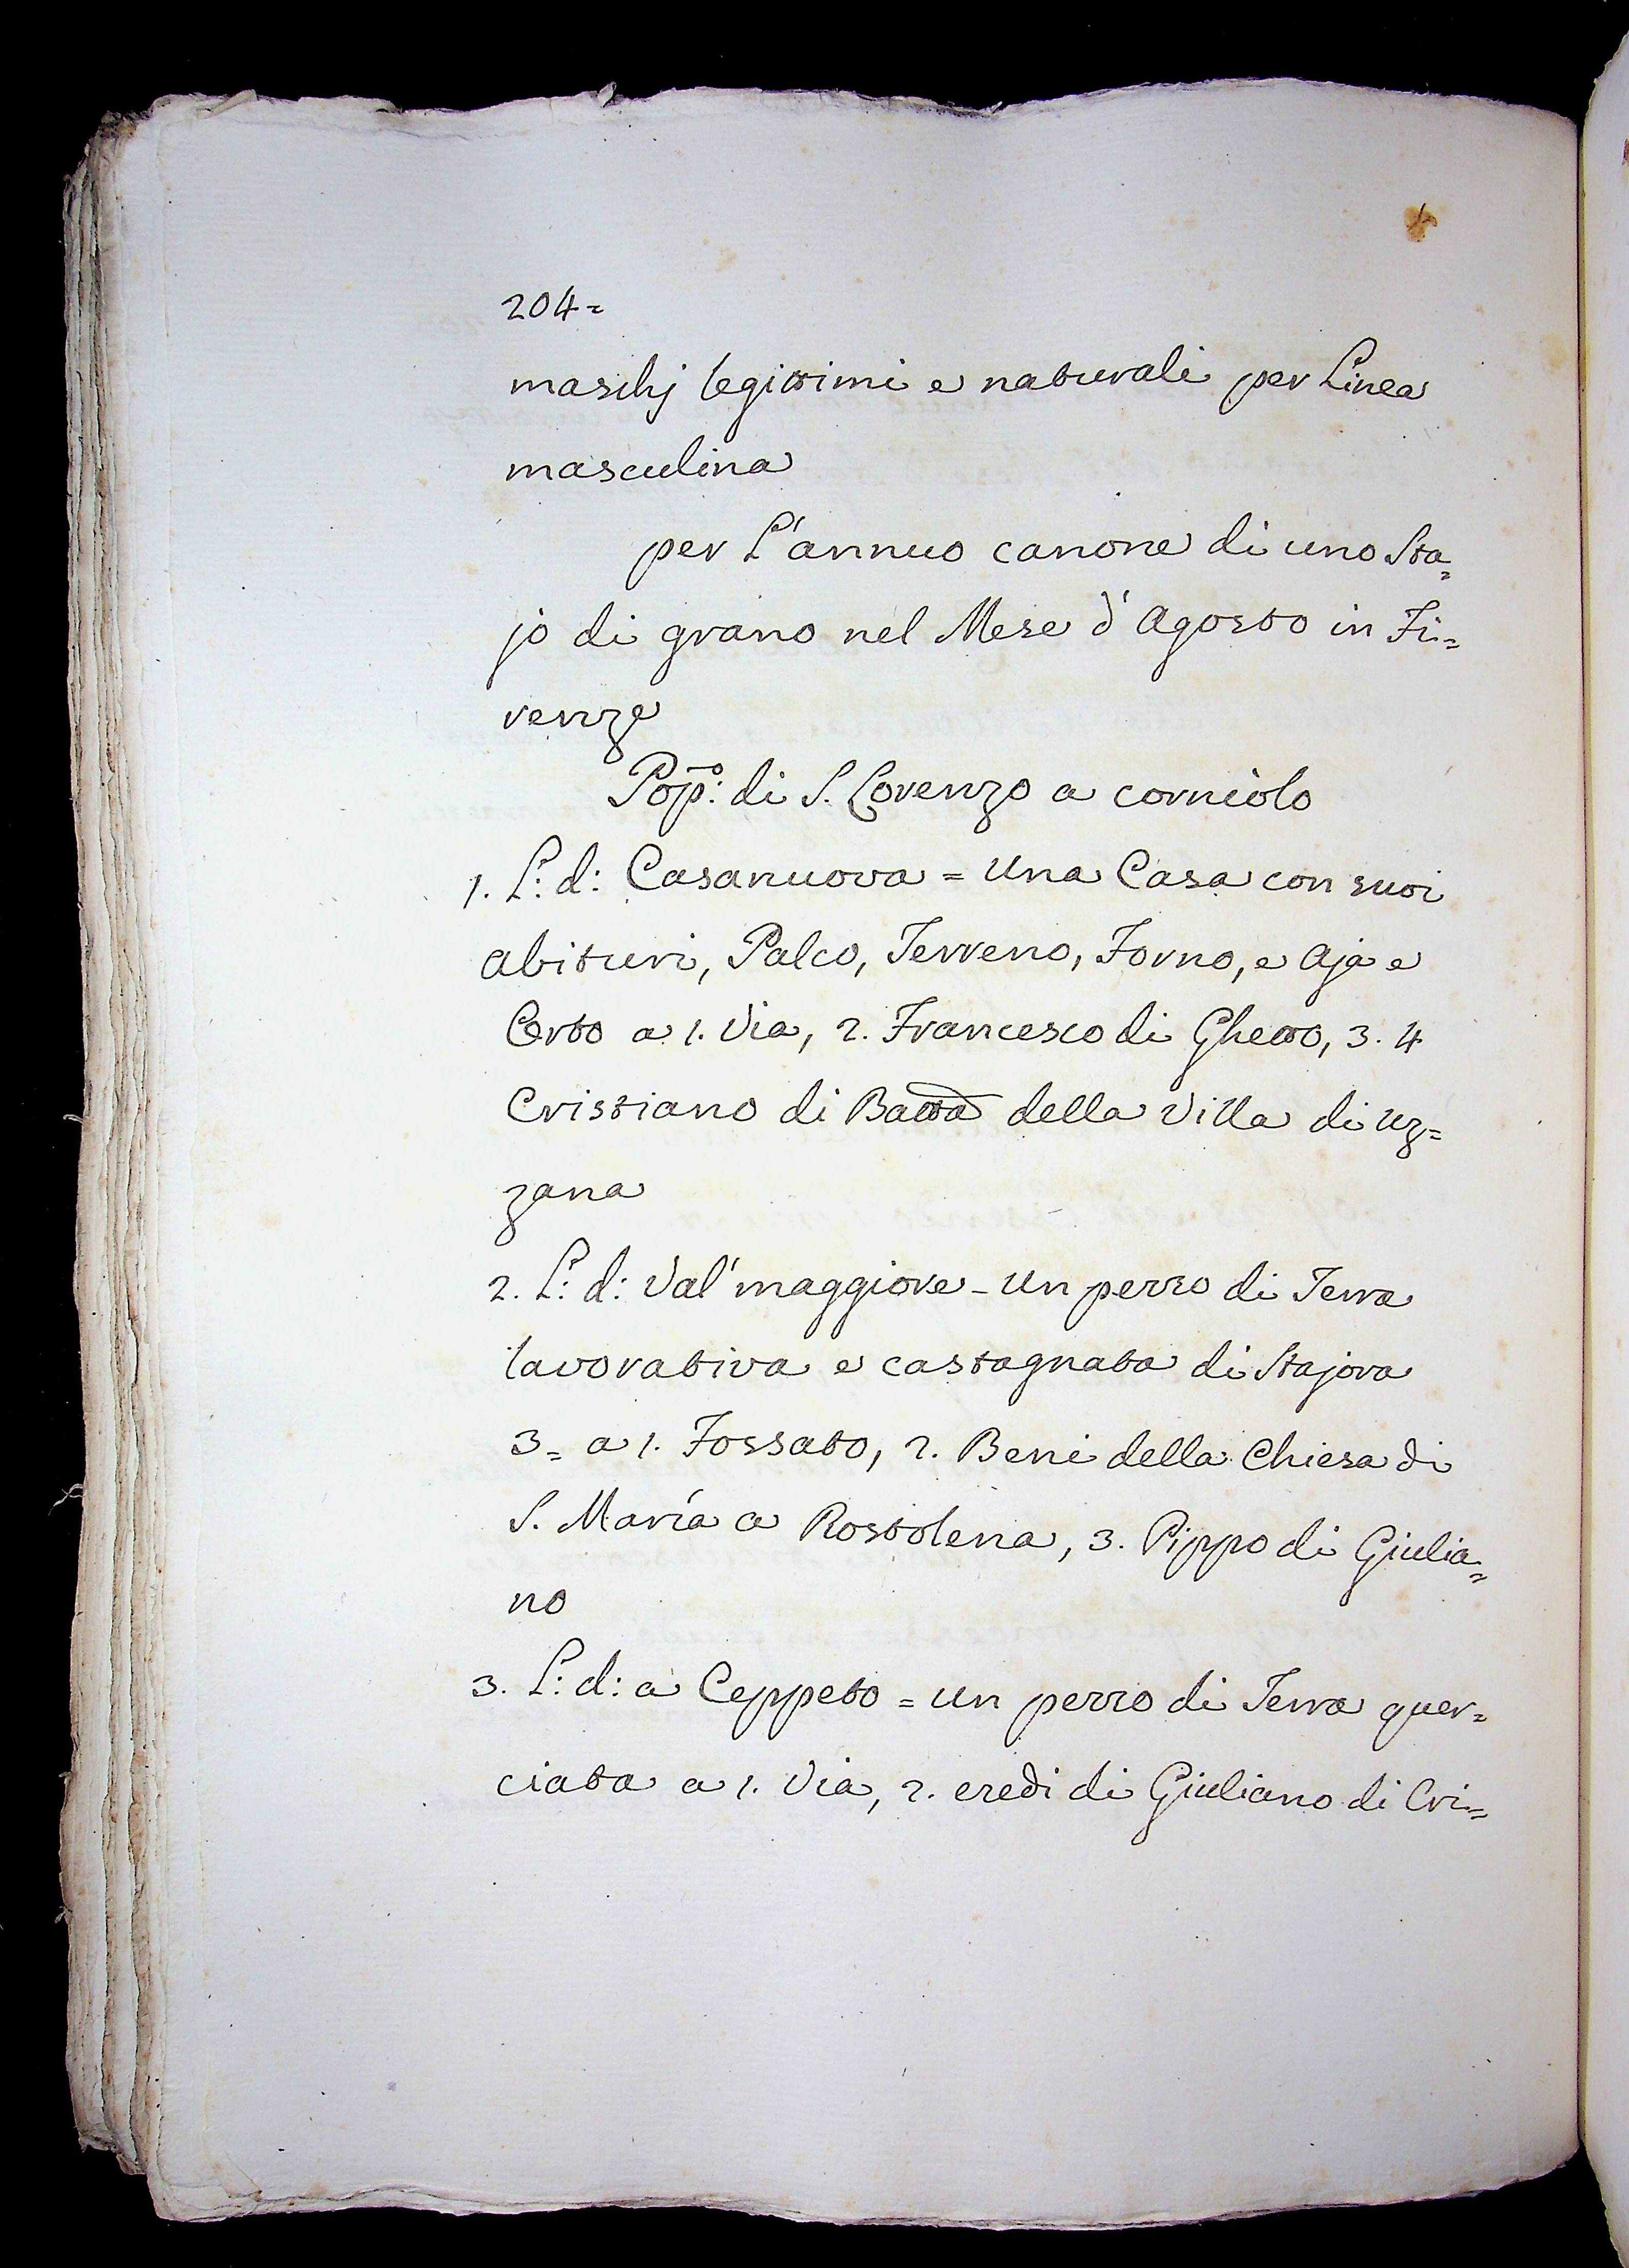 204=
maschj legittimi e naturali per Linea
masculina
per L'annuo canone di uno Sta=
jo di grano nel Mese d'Agosto in Fi=
renze
Pop:º di S. Lorenzo a corniòlo
1. L: d: Casanuova = una Casa con suoi
abituri, Palco, Terreno, Forno, e Aja e
Orto a 1. Via, 2. Francesco di Ghetto, 3. 4
Cristiano di Batta della Villa di Uz=
zana
2. L: d: Val'maggiore - un pezzo di Terra
lavorativa e castagnata di Stajora
3= a 1. Fossato, 2. Beni della Chiesa di
S. Maria a Rostolena, 3. Pippo di Giulia=
no
3. L: d: a Ceppeto = un pezzo di Terra quer=
ciata a 1. Via, 2. eredi di Giuliano di Cri=